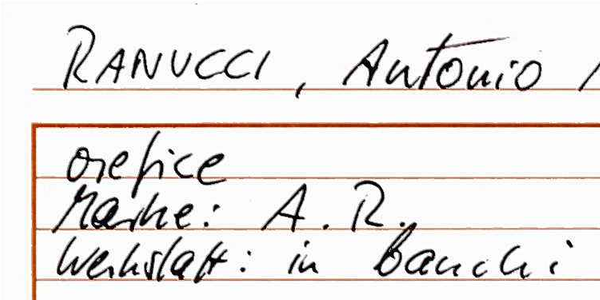 RANUCCI, Antonio
orefice
Marke: A.R.
Werkstatt: in Banchi